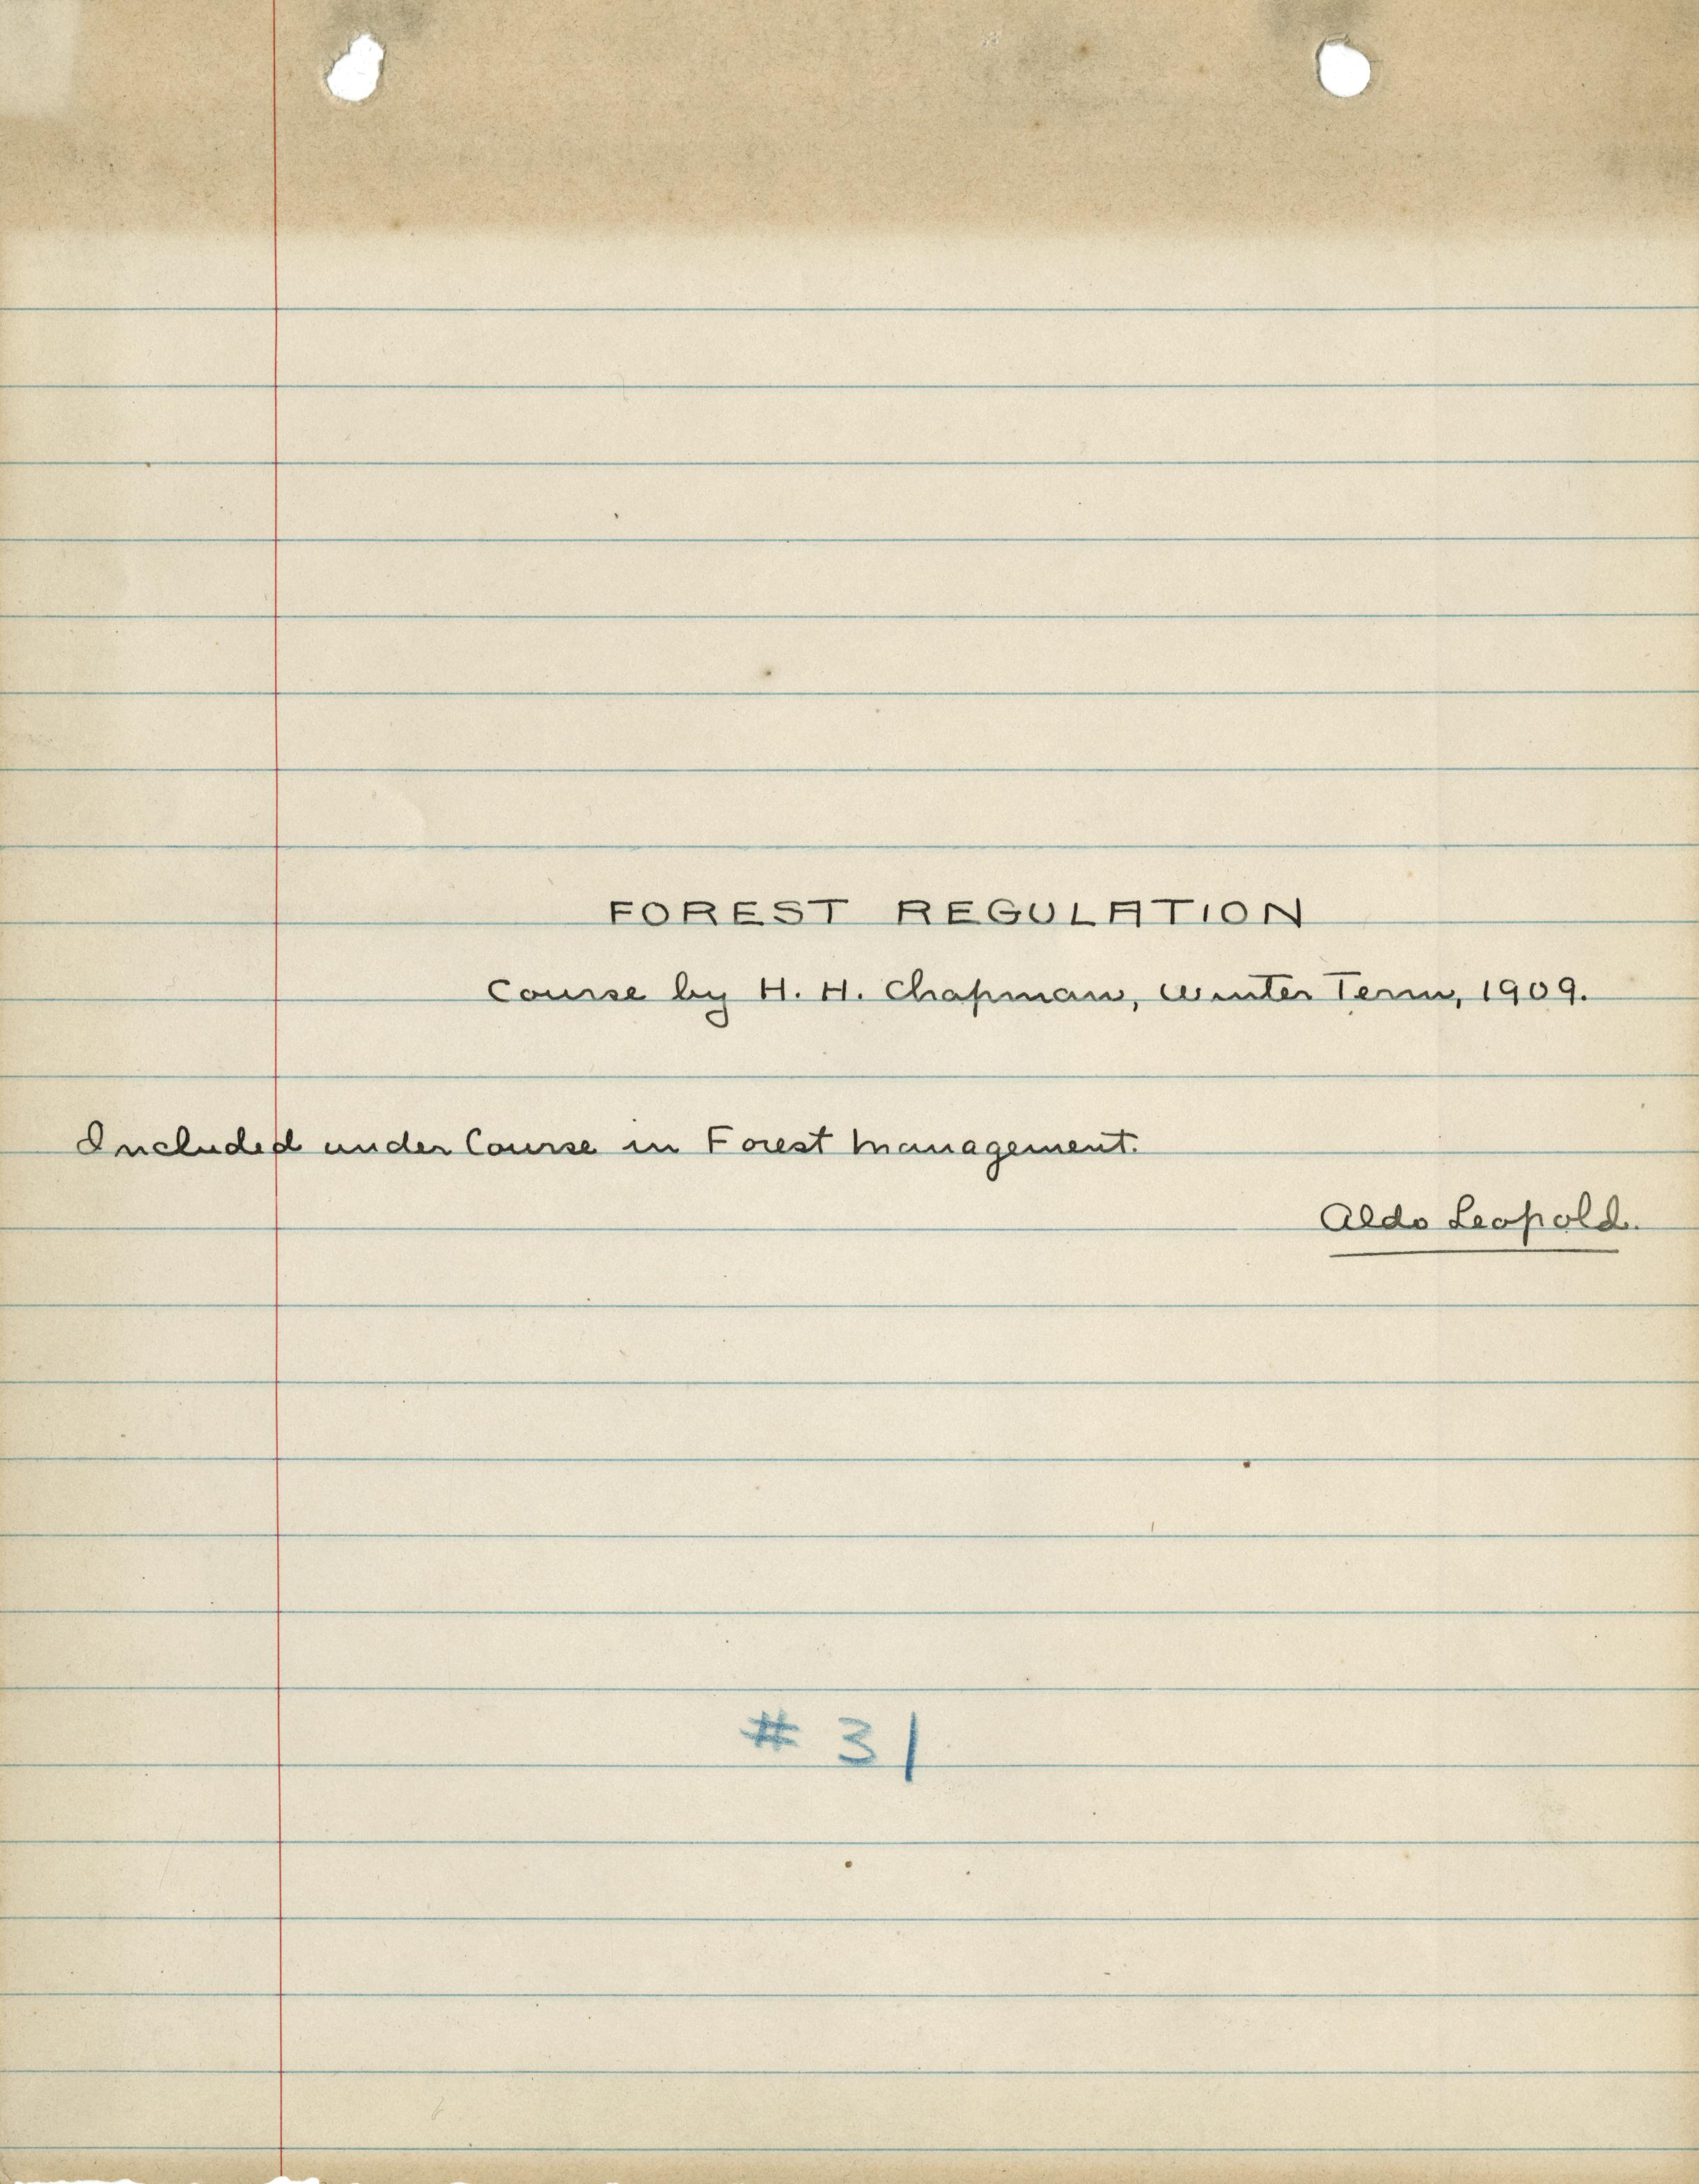 FOREST REGULATION
Course by H. H. Chapman, Winter Term, 1909.
Included under Course in Forest Management.
Aldo Leopold.
# 31